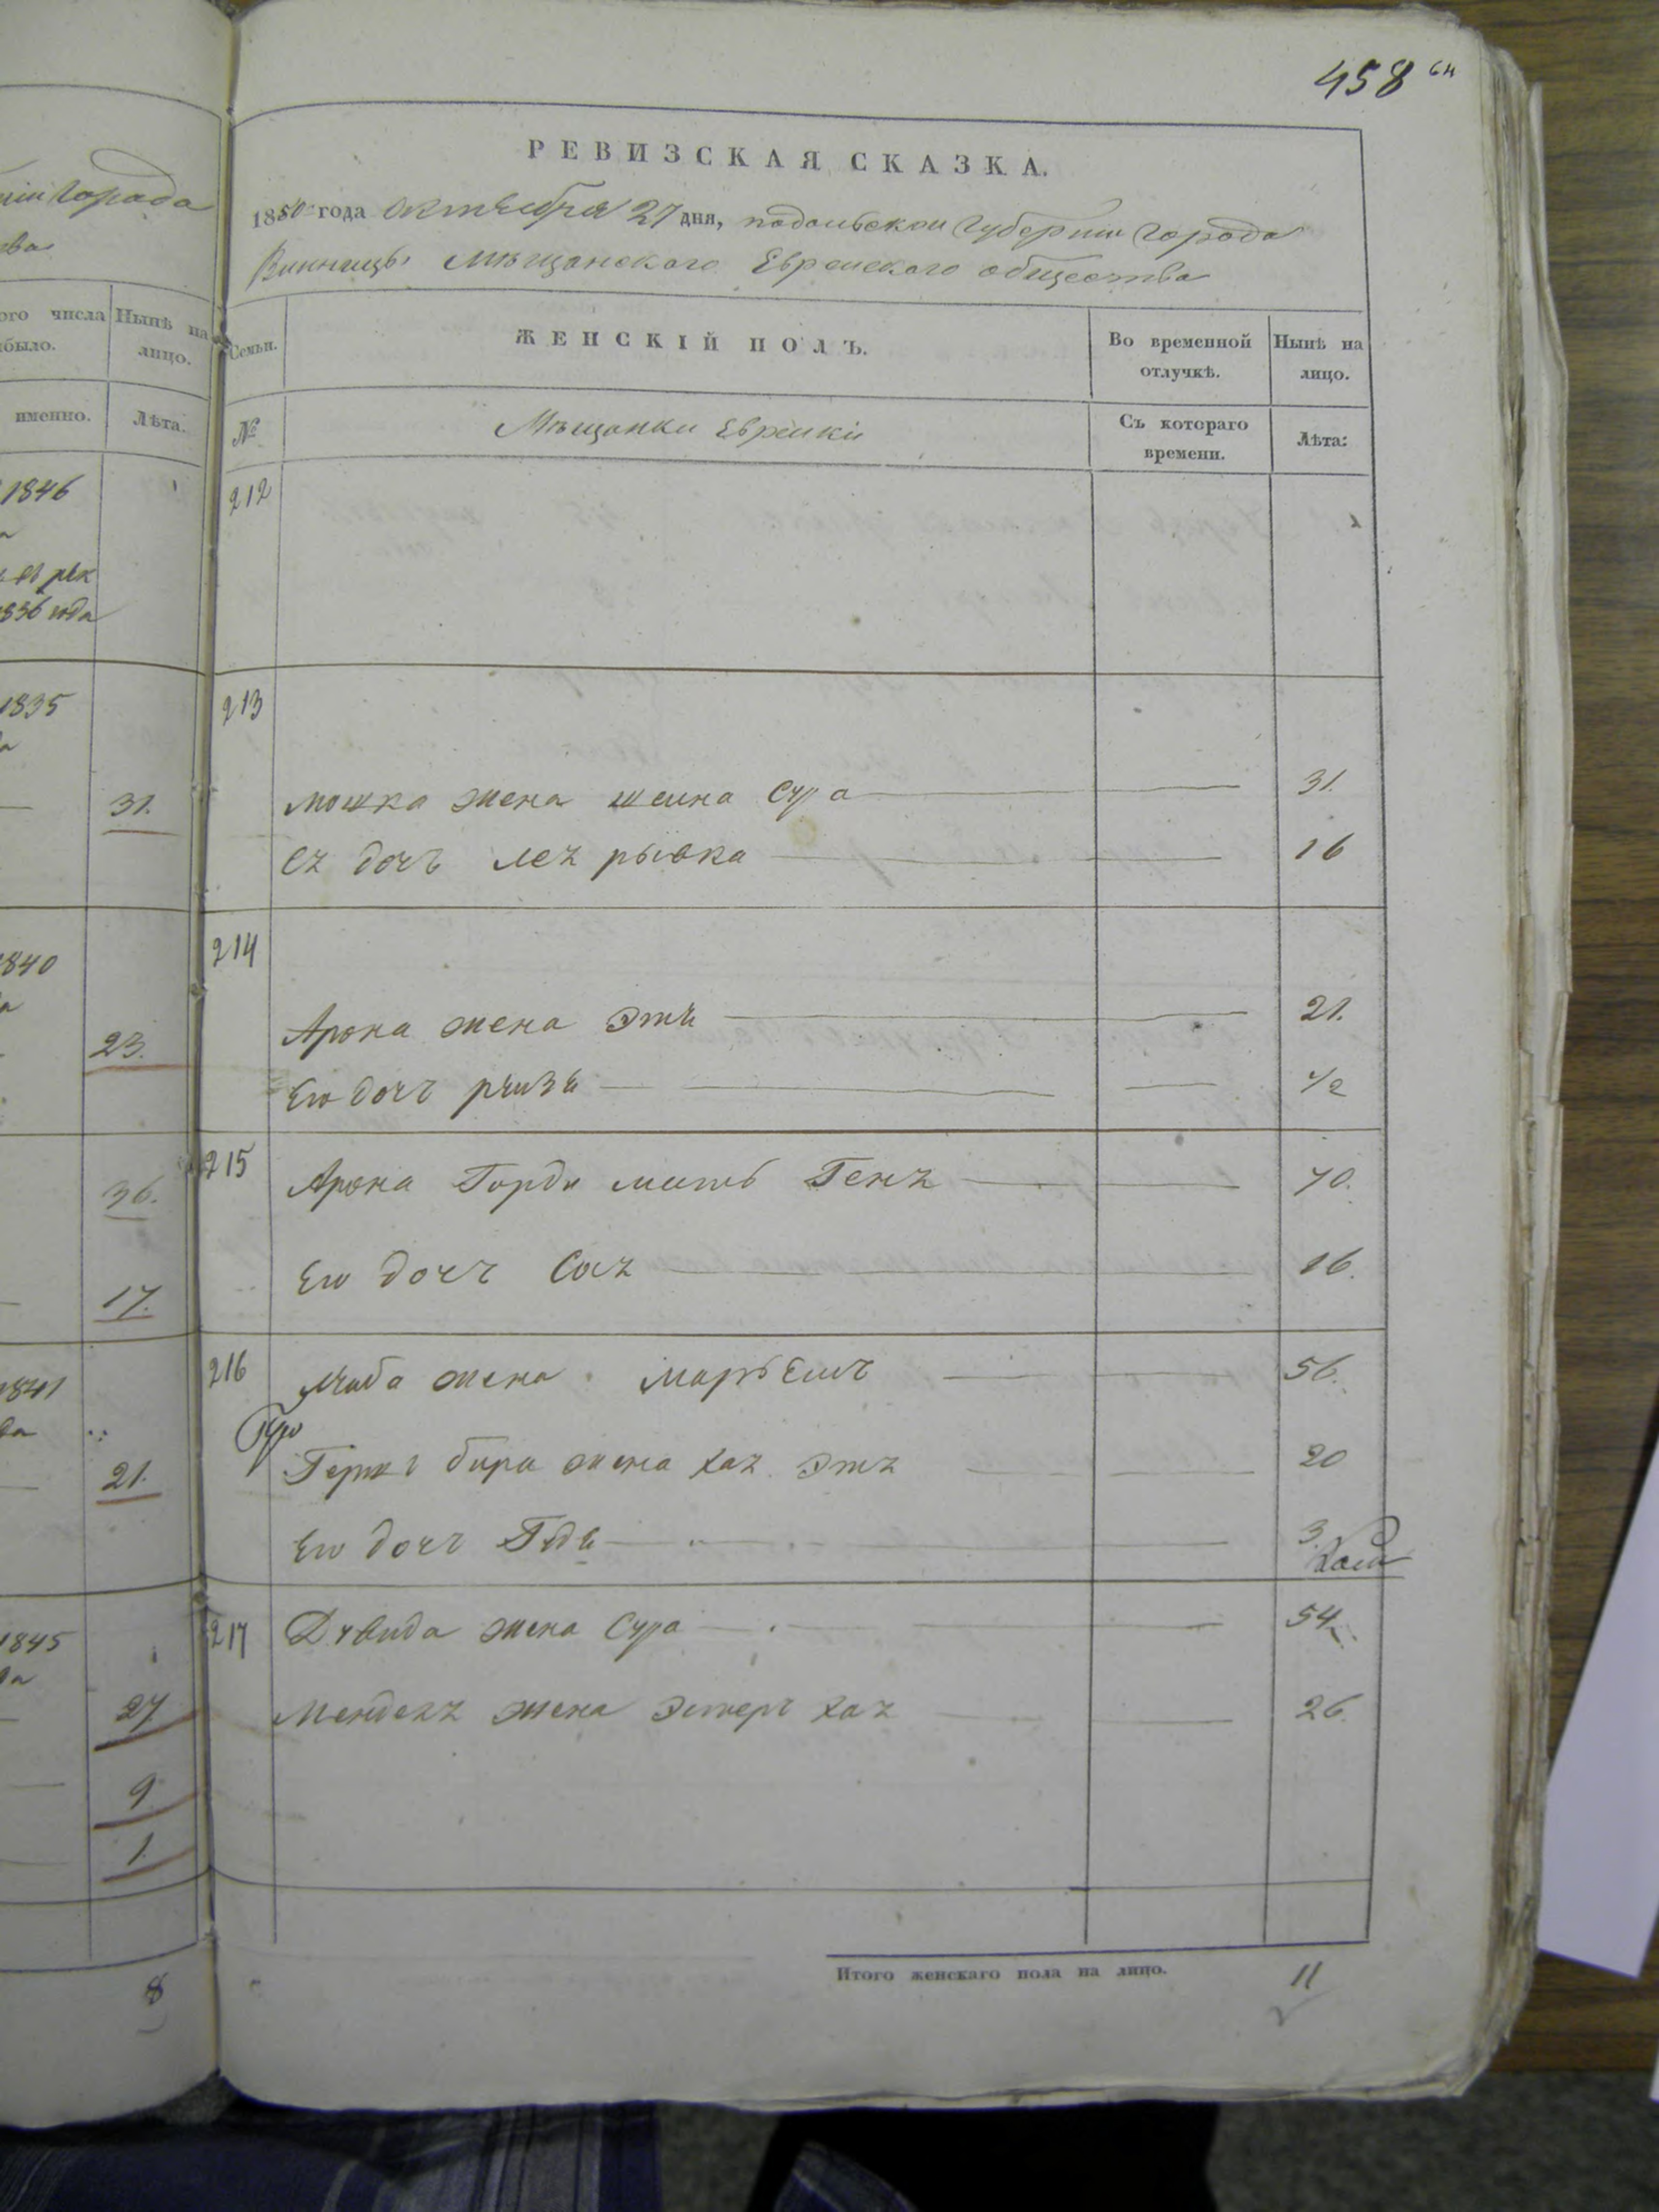 458 64
РЕВИЗСКАЯ СКАЗКА.
1850 года октября 27 дня, подольской Губернии города
Винницы мѣщанского Еврейского общества
Семьи. ЖЕНСКІЙ ПОЛЪ. Во временной отлучкѣ. Нынѣ на лицо.
№ Мѣщанки Еврейки Съ котораго времени. Лѣта:
212
213
мошка жена шейна Сура 31.
Ея дочь лея рывка 16
214
Арона жена Этя 21.
Его дочь рейзя 1/2
215 Арона мать Геня 70.
Его дочь Сося 16.
216 жена марьем 56.
жена хая Этя 20
Его дочь 3
217 Давида жена Сура 54
Менделя жена Эстер хая 26.
Итого женскаго пола на лицо. 11
города
ва
ого числа Нынѣ на
было. лицо.
именно. Лѣта.
1846
1835
31.
1840
23.
36.
17.
1841
21.
1845
27
9
1.
8